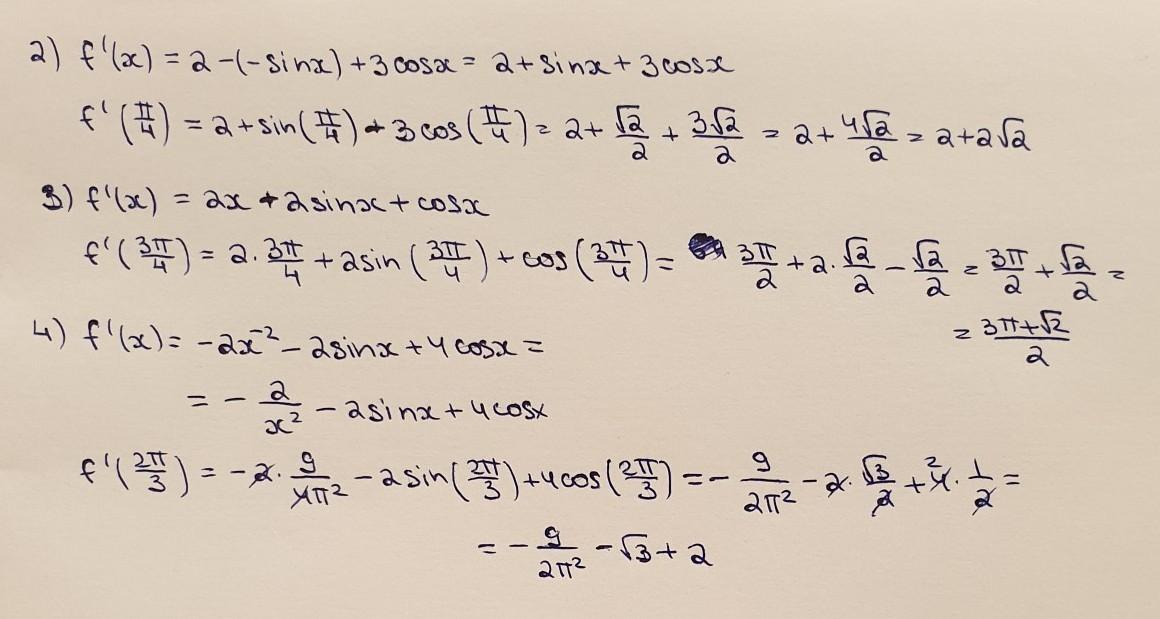 2) f'(x) = 2-(-sinx)+3cosx = 2+sinx+3cosx
f'(π/4) = 2+sin(π/4)+3cos(π/4) = 2+ √2/2 + 3√2/2 = 2+ 4√2/2 = 2+2√2
3) f'(x) = 2x+2sinx+cosx
f'(3π/4) = 2·3π/4+2sin(3π/4)+cos(3π/4) = 3π/2+2·√2/2-√2/2 = 3π/2+√2/2 =
= (3π+√2)/2
4) f'(x) = -2x⁻²-2sinx+4cosx =
= -2/x²-2sinx+4cosx
f'(2π/3) = -2·9/4π²-2sin(2π/3)+4cos(2π/3) = -9/2π²-2·√3/2+²4·1/2 =
= -9/2π²-√3+2